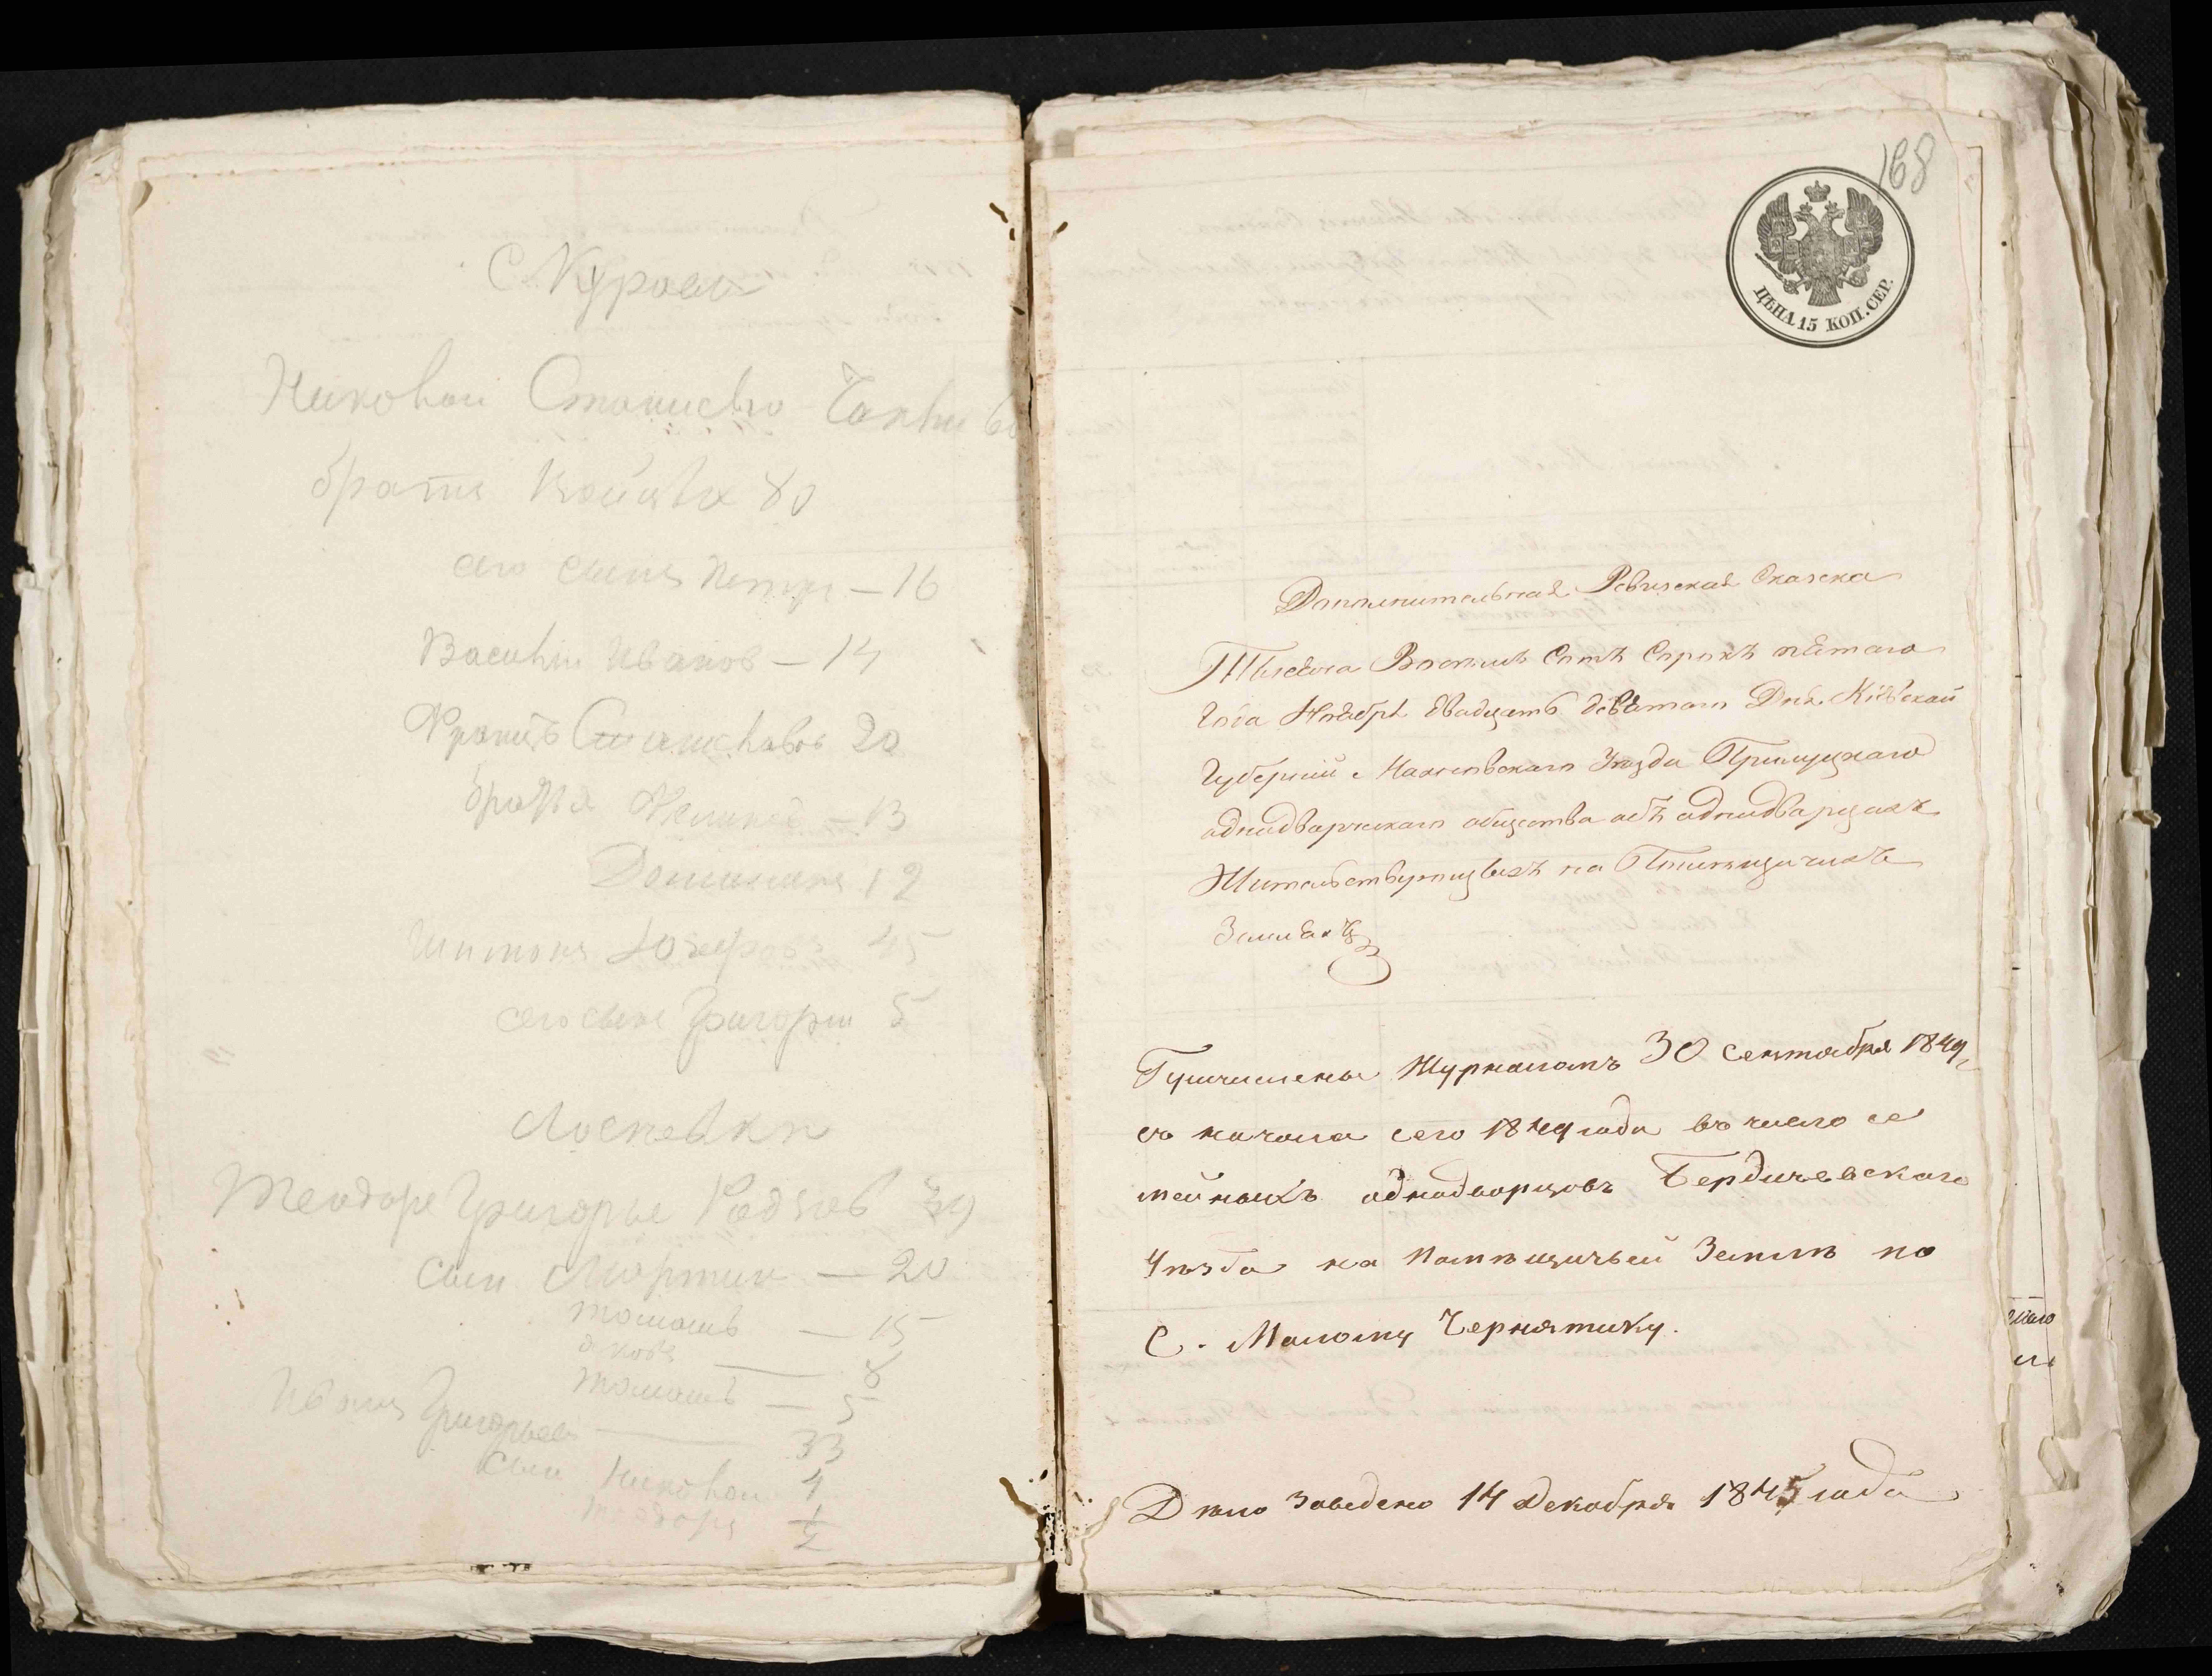 С. Кураси
Николай Станиславо
брата Войцеха 80
его сынъ Петръ — 16
Василий Иванов — 14
Францъ Станиславов 20
братья — 13
Доминикъ 12
Шимонъ Юзефовъ 45
его сынъ Григорий 5
Лоспевки
Теодоръ Григорье 39
сын Мартин — 20
Томашъ — 15
Яковъ — 8
Томашъ — 5
Иванъ Григорьев — 33
сын Николай 4
Теодоръ 1/2
168
ЦѢНА 15 КОП. СЕР.
Дополнительная Ревизская Сказка
Тысяча Восемь Сотъ Сорокъ пятаго
Года Ноября двадцать девятаго Дня Кіевской
Губерніи Махновскаго Уезда Прилуцкаго
однодворческаго общества объ однодворцахъ
Жительствующихъ на Помещичихъ
Земляхъ
Причислены Журналомъ 30 Сентября 1849
съ начала сего 1849 года въ число се
мейныхъ однодворцовъ Бердичевскаго
Уѣзда на Помѣщичьей Землѣ по
С. Малому Чернятину.
Дѣло Заведено 14 Декабря 1845 года